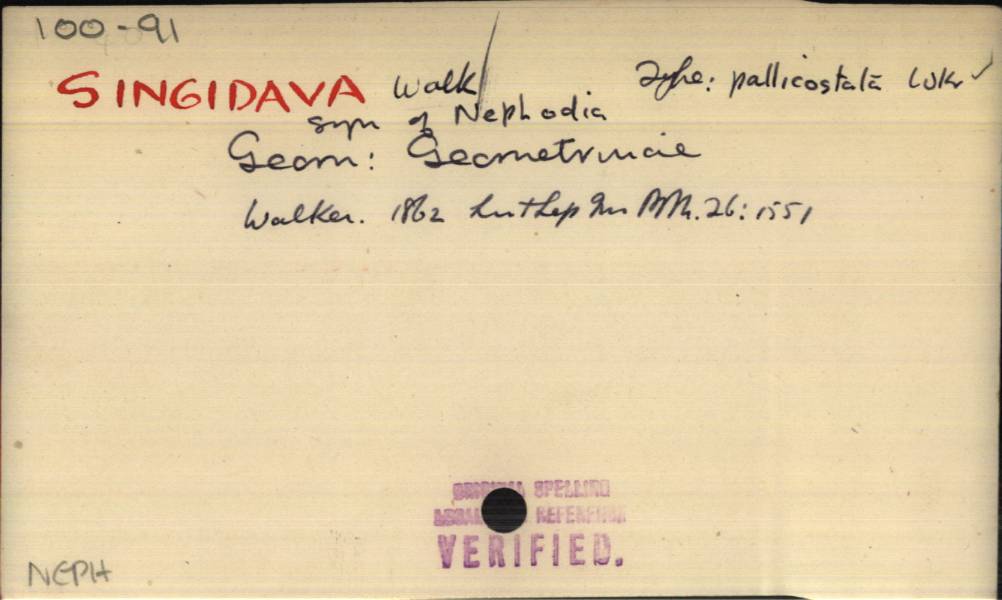 100-91
SINGIDAVA Walk Type: pallicostata Wkr ✓
syn of Nephodia
Geom: Geometrinae
Walker. 1862 List Lep Ins BM. 26: 1551
ORIGINAL SPELLING
REFERENCE
VERIFIED.
NEPH